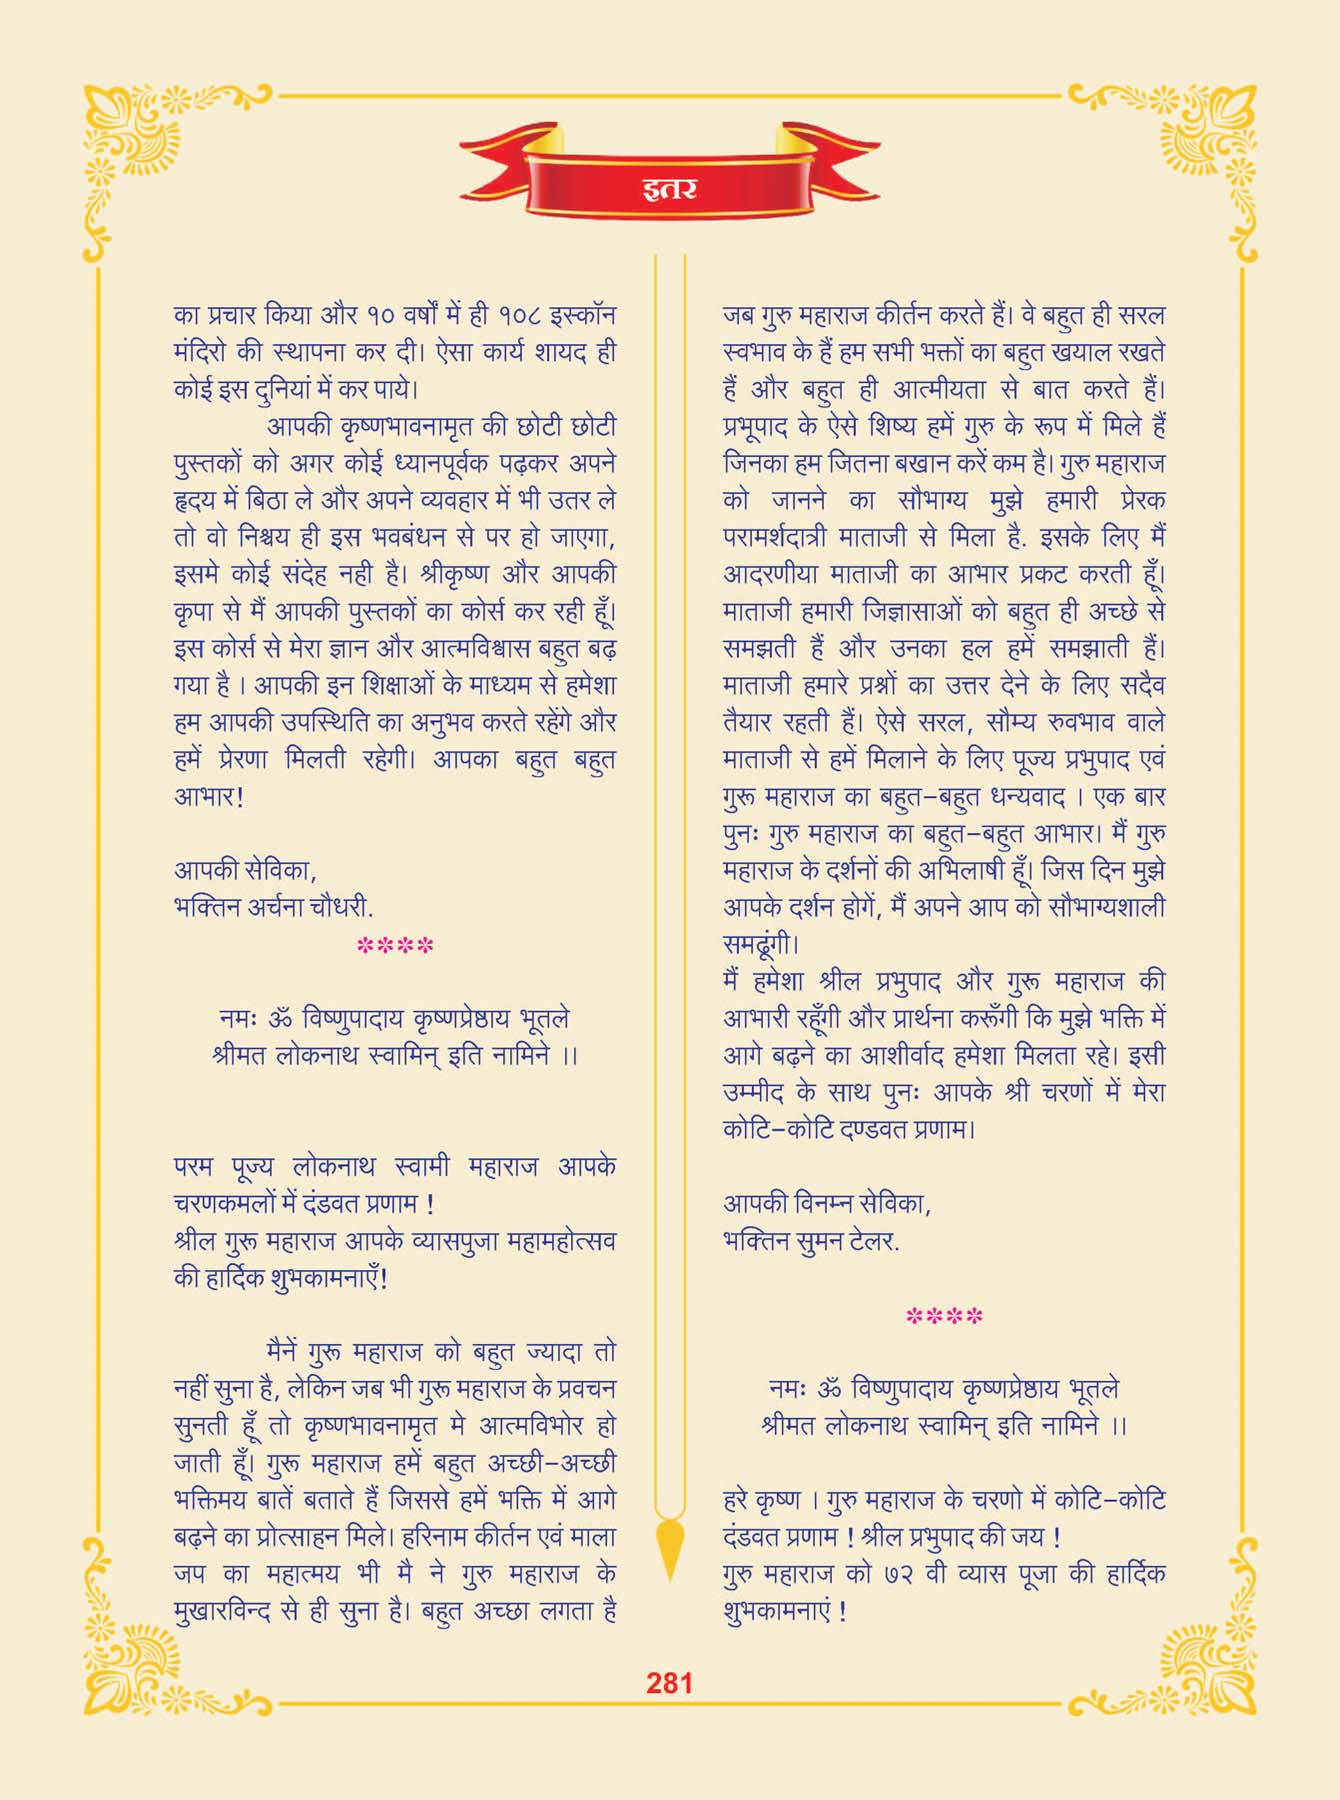 इतर
का प्रचार किया और १० वर्षों में ही १०८ इस्कॉन
मंदिरो की स्थापना कर दी। ऐसा कार्य शायद ही
कोई इस दुनियां में कर पाये।
आपकी कृष्णभावनामृत की छोटी छोटी
पुस्तकों को अगर कोई ध्यानपूर्वक पढ़कर अपने
हृदय में बिठा ले और अपने व्यवहार में भी उतर ले
तो वो निश्चय ही इस भवबंधन से पर हो जाएगा,
इसमे कोई संदेह नही है। श्रीकृष्ण और आपकी
कृपा से मैं आपकी पुस्तकों का कोर्स कर रही हूँ।
इस कोर्स से मेरा ज्ञान और आत्मविश्वास बहुत बढ़
गया है । आपकी इन शिक्षाओं के माध्यम से हमेशा
हम आपकी उपस्थिति का अनुभव करते रहेंगे और
हमें प्रेरणा मिलती रहेगी। आपका बहुत बहुत
आभार!
आपकी सेविका,
भक्तिन अर्चना चौधरी.
****
नमः ॐ विष्णुपादाय कृष्णप्रेष्ठाय भूतले
श्रीमत लोकनाथ स्वामिन् इति नामिने ।।
परम पूज्य लोकनाथ स्वामी महाराज आपके
चरणकमलों में दंडवत प्रणाम !
श्रील गुरू महाराज आपके व्यासपुजा महामहोत्सव
की हार्दिक शुभकामनाएँ!
मैनें गुरू महाराज को बहुत ज्यादा तो
नहीं सुना है, लेकिन जब भी गुरू महाराज के प्रवचन
सुनती हूँ तो कृष्णभावनामृत मे आत्मविभोर हो
जाती हूँ। गुरू महाराज हमें बहुत अच्छी-अच्छी
भक्तिमय बातें बताते हैं जिससे हमें भक्ति में आगे
बढ़ने का प्रोत्साहन मिले। हरिनाम कीर्तन एवं माला
जप का महात्मय भी मै ने गुरु महाराज के
मुखारविन्द से ही सुना है। बहुत अच्छा लगता है
जब गुरु महाराज कीर्तन करते हैं। वे बहुत ही सरल
स्वभाव के हैं हम सभी भक्तों का बहुत खयाल रखते
हैं और बहुत ही आत्मीयता से बात करते हैं।
प्रभूपाद के ऐसे शिष्य हमें गुरु के रूप में मिले हैं
जिनका हम जितना बखान करें कम है। गुरु महाराज
को जानने का सौभाग्य मुझे हमारी प्रेरक
परामर्शदात्री माताजी से मिला है. इसके लिए मैं
आदरणीया माताजी का आभार प्रकट करती हूँ।
माताजी हमारी जिज्ञासाओं को बहुत ही अच्छे से
समझती हैं और उनका हल हमें समझाती हैं।
माताजी हमारे प्रश्नों का उत्तर देने के लिए सदैव
तैयार रहती हैं। ऐसे सरल, सौम्य रुवभाव वाले
माताजी से हमें मिलाने के लिए पूज्य प्रभुपाद एवं
गुरू महाराज का बहुत-बहुत धन्यवाद । एक बार
पुनः गुरु महाराज का बहुत-बहुत आभार। मैं गुरु
महाराज के दर्शनों की अभिलाषी हूँ। जिस दिन मुझे
आपके दर्शन होगें, मैं अपने आप को सौभाग्यशाली
समढूंगी।
मैं हमेशा श्रील प्रभुपाद और गुरू महाराज की
आभारी रहूँगी और प्रार्थना करूँगी कि मुझे भक्ति में
आगे बढ़ने का आशीर्वाद हमेशा मिलता रहे। इसी
उम्मीद के साथ पुनः आपके श्री चरणों में मेरा
कोटि-कोटि दण्डवत प्रणाम।
आपकी विनम्न सेविका,
भक्तिन सुमन टेलर.
****
नमः ॐ विष्णुपादाय कृष्णप्रेष्ठाय भूतले
श्रीमत लोकनाथ स्वामिन् इति नामिने ।।
हरे कृष्ण । गुरु महाराज के चरणो में कोटि-कोटि
दंडवत प्रणाम ! श्रील प्रभुपाद की जय !
गुरु महाराज को ७२ वी व्यास पूजा की हार्दिक
शुभकामनाएं !
281